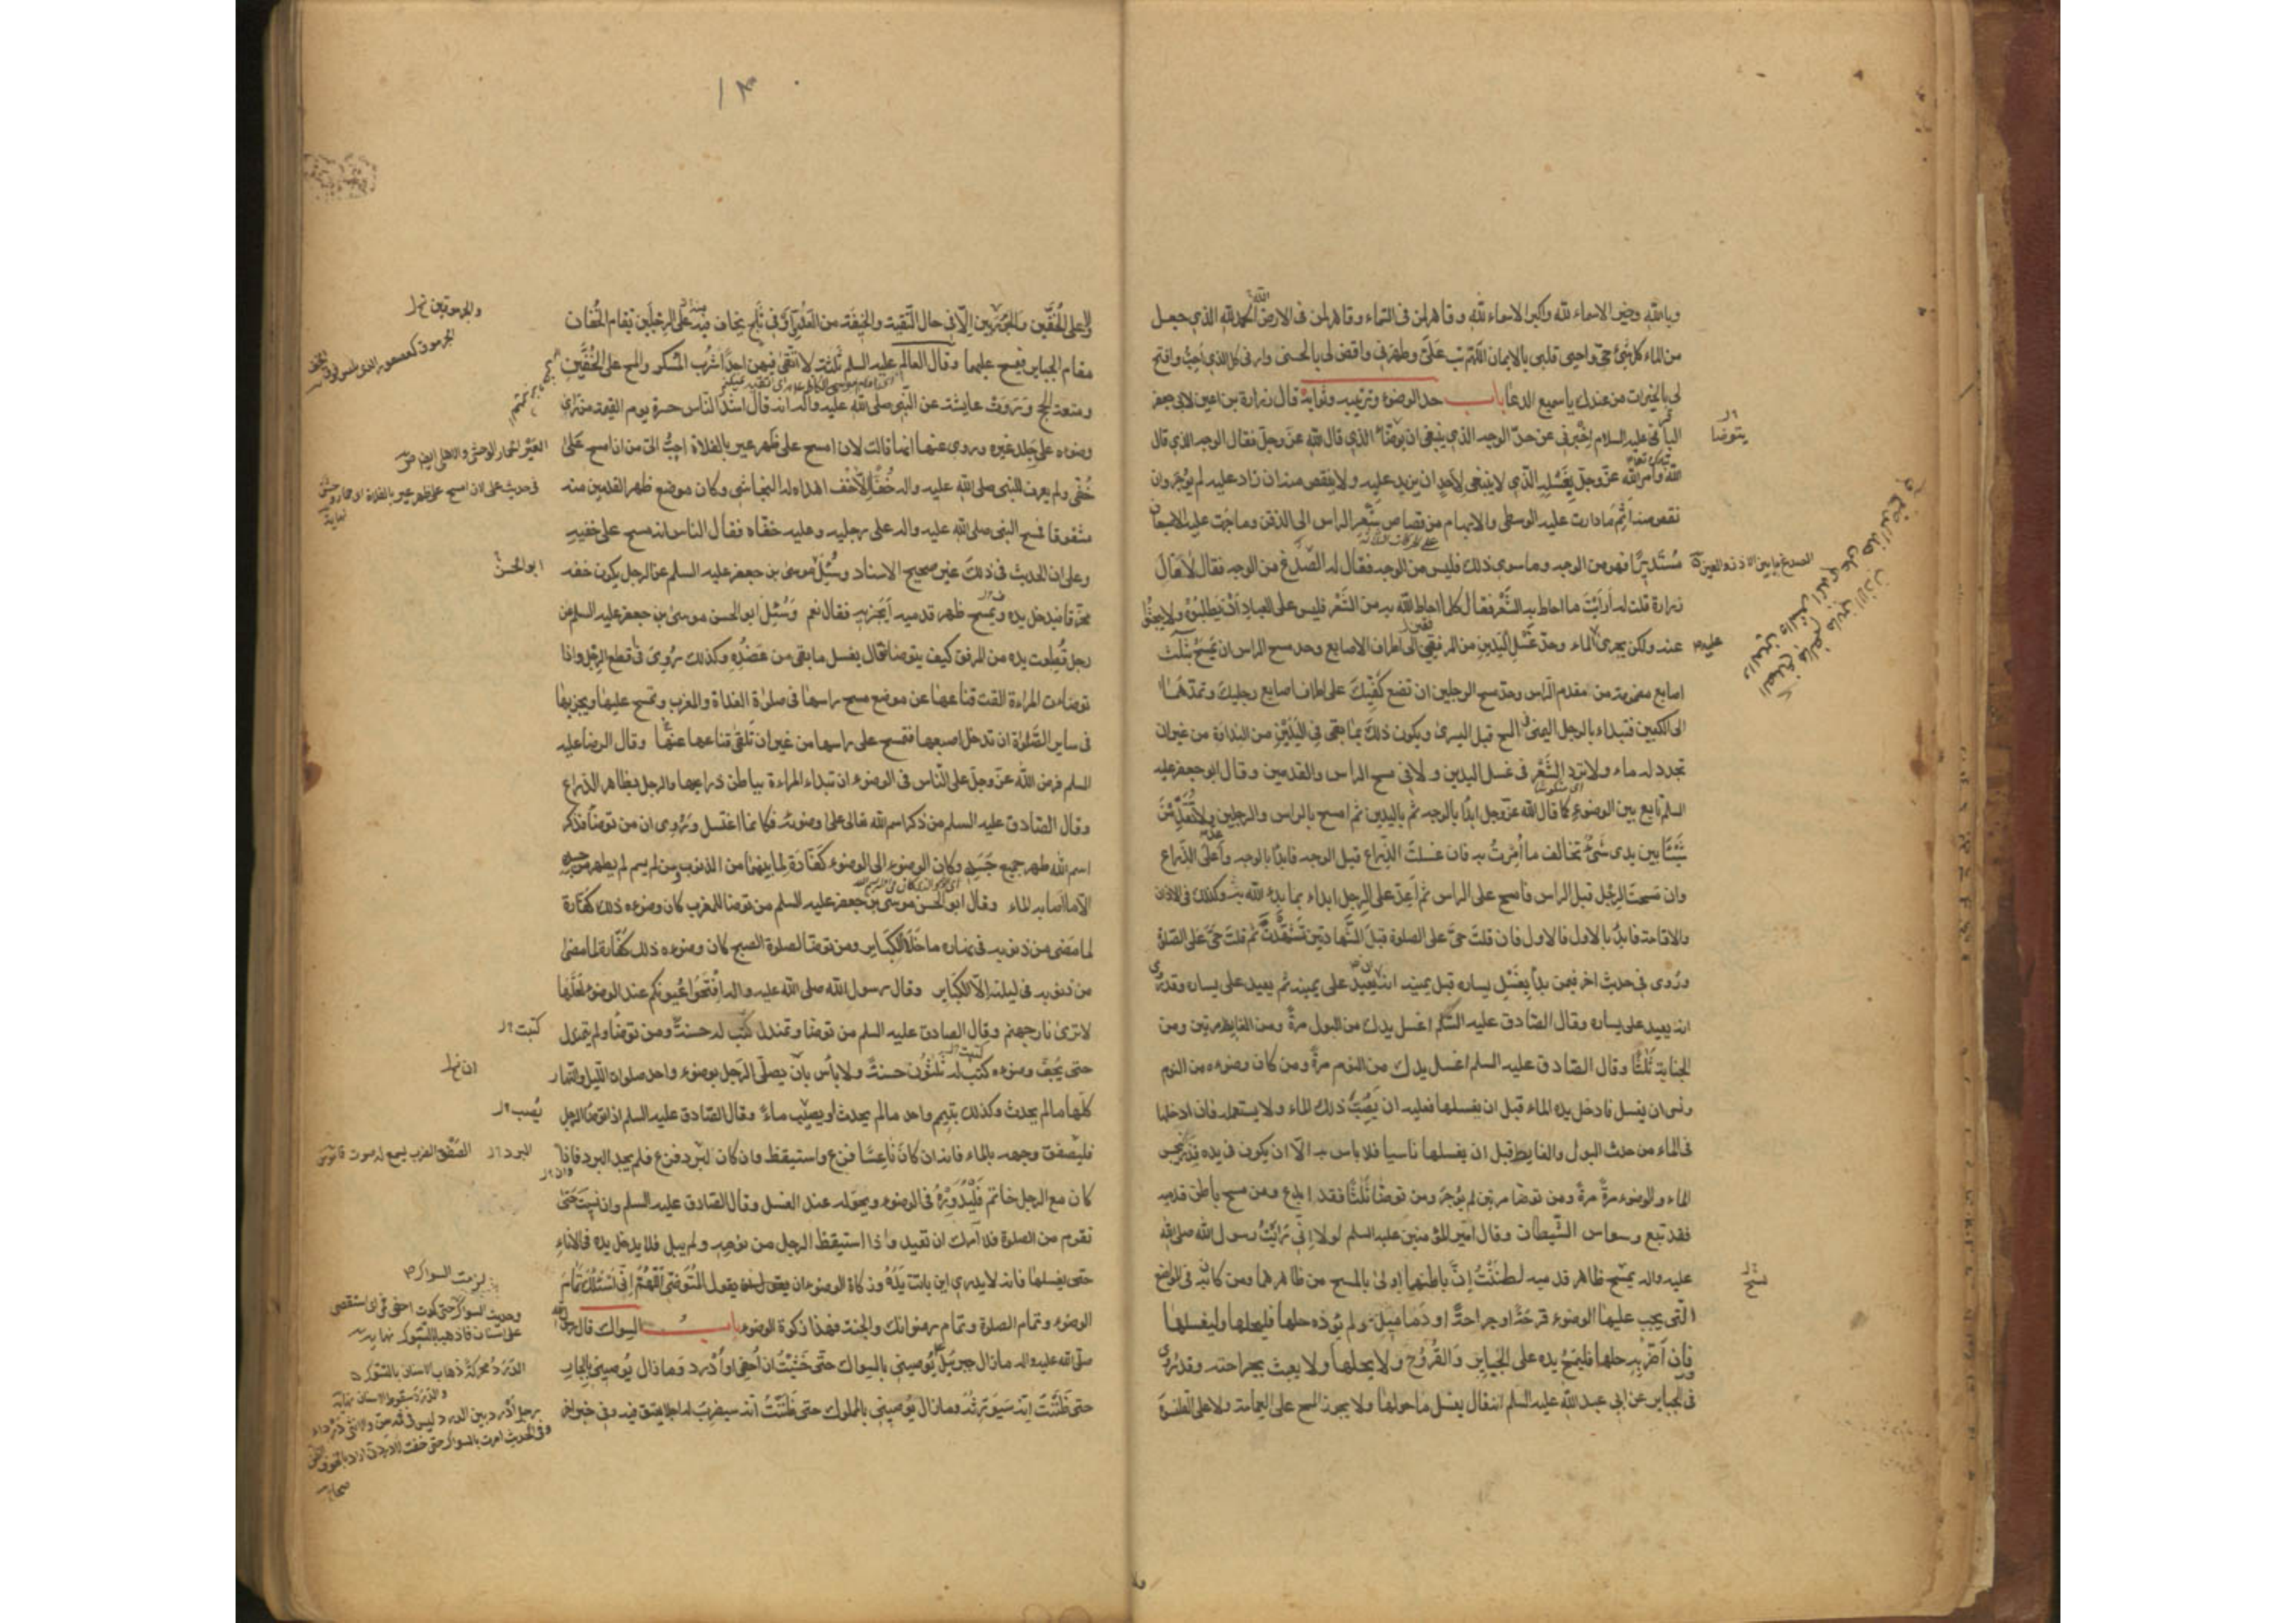 وبالله وخير الاسماء لله واكبر الاسماء لله وقاهر لمن فى السماء وقاهر لمن فى الارض الحمد لله الذي جعل
من الماء كل شئ حي واحيى قلبى بالايمان اللهم تب علىّ وطهرنى واقض لى بالحسنى وارنى كل الذي احبّ وافتح
لى بالخيرات من عندك يا سميع الدعا باب حد الوضوء وترتيبه وثوابه قال زرارة بن اعين لابى جعفر
الباقر عليه السلام اخبرنى عن حدّ الوجه الذي ينبغى ان يوضّأ الذي قال الله عزّ وجلّ فقال الوجه الذي قال
الله وامر الله عزّ وجل بغسله الذي لا ينبغى لاحد ان يزيد عليه ولا ينقص منه ان زاد عليه لم يوجر وان
نقص منه اثم ما دارت عليه الوسطى والابهام من قصاص شعر الراس الى الذقن وما جرت عليه الاصبعان
مستديرًا فهو من الوجه وما سوى ذلك فليس من الوجه فقال له الصدغ من الوجه فقال لا قال
زرارة قلت له أرأيت ما احاط به الشعر فقال كلما احاط الله به من الشعر فليس على العباد ان يطلبوه ولا يبحثوا
عنه ولكن يجرى عليه الماء وحدّ غسل اليدين من المرفقين الى اطراف الاصابع وحد مسح الراس ان تمسح بثلث
اصابع مضمومة من مقدم الراس وحدّ مسح الرجلين ان تضع كفيك على اطراف اصابع رجليك وتمدّهما
الى الكعبين فتبداء بالرجل اليمنى فى المسح قبل اليسرى ويكون ذلك بما بقى فى اليدين من النداوة من غير ان
تجدد له ماء ولا ترد الشعر فى غسل اليدين ولا فى مسح الراس والقدمين وقال ابو جعفر عليه
السلم تابع بين الوضوء كما قال الله عزّ وجل ابدأ بالوجه ثم باليدين ثم امسح بالراس والرجلين ولا تقدّمن
شيئًا بين يدى شئ تخالف ما أمرت به فان غسلت الذراع قبل الوجه فابدأ بالوجه وأعد على الذراع
وان مسحت الرجل قبل الراس فامسح على الراس ثم أعد على الرجل ابداء بما بدء الله به وكذلك فى الاذان
والاقامة فابدأ بالاول فالاول فان قلت حىّ على الصلوة قبل الشهادتين تشهّدت ثم قلت حىّ على الصلوة
وروى فى حديث اخر فيمن بدأ بغسل يساره قبل يمينه انه يعيد على يمينه ثم يعيد على يساره وقد روى
انه يعيد على يساره وقال الصادق عليه السلم اغسل يدك من البول مرة ومن الغايط مرتين ومن
الجنابة ثلثًا وقال الصادق عليه السلم اغسل يدك من النوم مرة ومن كان وضوءه من النوم
ونسى ان يغسل فادخل يده الماء قبل ان يغسلها فعليه ان يصبّ ذلك الماء ولا يستعمله فان ادخلها
فى الماء من حدث البول والغايط قبل ان يغسلها ناسيا فلا باس به الا ان يكون فى يده قذر ينجس
الماء والوضوء مرة مرة ومن توضا مرتين لم يوجر ومن توضا ثلثًا فقد ابدع ومن مسح باطن قدميه
فقد تبع وسواس الشيطان وقال امير المؤمنين عليه السلم لولا انى رأيت رسول الله صلى الله
عليه واله يمسح ظاهر قدميه لظننت انّ باطنها اولى بالمسح من ظاهرهما ومن كان به فى المواضع
التى يجب عليها الوضوء قرحة او جراحة او دماميل ولم يؤذه حلها فليحلها وليغسلها
فان أضر به حلها فليمسح يده على الجباير والقروح ولا يحلها ولا يعبث بجراحته وقد روى
فى الجباير عن ابى عبد الله عليه السلم انه قال يغسل ما حولها ولا يجوز المسح على العمامة ولا على القلنسوة
يتوضا
الصدغ ما بين الاذن والعين
عليه
تمسح
١٣
ولا على الخفّين والجوربين الّا فى حال التقية والخيفة من العدو او فى ثلج يخاف فيه على الرجلين تقام الخفان
مقام الجباير فيمسح عليهما وقال العالم عليه السلم ثلثة لا اتّقى فيهن احدًا شرب المسكر والمسح على الخفين
ومتعة الحج وروت عايشة عن النبى صلى الله عليه واله انه قال اشد الناس حسرة يوم القيمة من راى
وضوءه على جلد غيره وروى عنها انها قالت لان امسح على ظهر عير بالفلاة احبّ الىّ من ان امسح على
خفّى ولم يعرف للنبى صلى الله عليه واله خفّ الا خف اهداه له النجاشى وكان موضع ظهر القدمين منه
مشقوقا فمسح النبى صلى الله عليه واله على رجليه وعليه خفّاه فقال الناس انه مسح على خفيه
وعلى ان الحديث فى ذلك غير صحيح الاسناد وسئل موسى بن جعفر عليه السلم عن الرجل يكون خفه
مخرّقا فيدخل يده ويمسح ظهر قدميه أيجزيه فقال نعم وسئل ابو الحسن موسى بن جعفر عليه السلم عن
رجل قطعت يده من المرفق كيف يتوضا فقال يغسل ما بقى من عضده وكذلك روى فى قطع الرجل واذا
توضات المراءة القت قناعها عن موضع مسح راسها فى صلوة الغداة والمغرب وتمسح عليها ويجزيها
فى ساير الصلوة ان تدخل اصبعها فتمسح على راسها من غير ان تلقى قناعها عنها وقال الرضا عليه
السلم فرض الله عزّ وجلّ على الناس فى الوضوء ان تبداء المراءة بباطن ذراعيها والرجل بظاهر الذراع
وقال الصادق عليه السلم من ذكر اسم الله تعالى على وضوئه فكانما اغتسل وروى ان من توضأ فذكر
اسم الله طهر جميع جسده وكان الوضوء الى الوضوء كفّارة لما بينهما من الذنوب ومن لم يسم لم يطهر من جسده
الا ما اصابه الماء وقال ابو الحسن موسى بن جعفر عليه السلم من توضا للمغرب كان وضوءه ذلك كفّارة
لما مضى من ذنوبه فى نهاره ما خلا الكباير ومن توضا لصلوة الصبح كان وضوءه ذلك كفّارة لما مضى
من ذنوبه فى ليلته الّا الكباير وقال رسول الله صلى الله عليه واله افتحوا عيونكم عند الوضوء لعلها
لا ترى نار جهنم وقال الصادق عليه السلم من توضا وتمندل كتب له حسنة ومن توضأ ولم يتمندل
حتى يجفّ وضوءه كتب له ثلثون حسنة ولا بأس بان يصلّى الرجل بوضوء واحد صلوات الليل والنهار
كلها ما لم يحدث وكذلك بتيمم واحد ما لم يحدث او يصيب ماء وقال الصادق عليه السلم اذا توضأ الرجل
فليصفق وجهه بالماء فانه ان كان ناعسًا فزع واستيقظ وان كان البرد فزع فلم يجد البرد فاذا
كان مع الرجل خاتم فليدوّره فى الوضوء ويحوله عند الغسل وقال الصادق عليه السلم وان نسيت حتى
تقوم من الصلوة فلا آمرك ان تعيد واذا استيقظ الرجل من نومه ولم يبل فلا يدخل يده فى الاناء
حتى يغسلها فانه لا يدرى اين باتت يده وزكاة الوضوء ان يقول المتوضى اللهم انى اسئلك تمام
الوضوء وتمام الصلوة وتمام رضوانك والجنة فهذا زكوة الوضوء باب السواك قال رسول الله
صلى الله عليه واله ما زال جبرئيل يوصينى بالسواك حتى خشيت ان أحفى او أدرد وما زال يوصينى بالجار
حتى ظننت انه سيورثه وما زال يوصينى بالمملوك حتى ظننت انه سيضرب له اجلا يعتق فيه وفى خبر اخر
العير الحمار الوحشى والاهلى ايضا
ابو الحسن
كتبت
يصب
البرد
لزمت السواك
الدرد محركة ذهاب الاسنان
صحاح